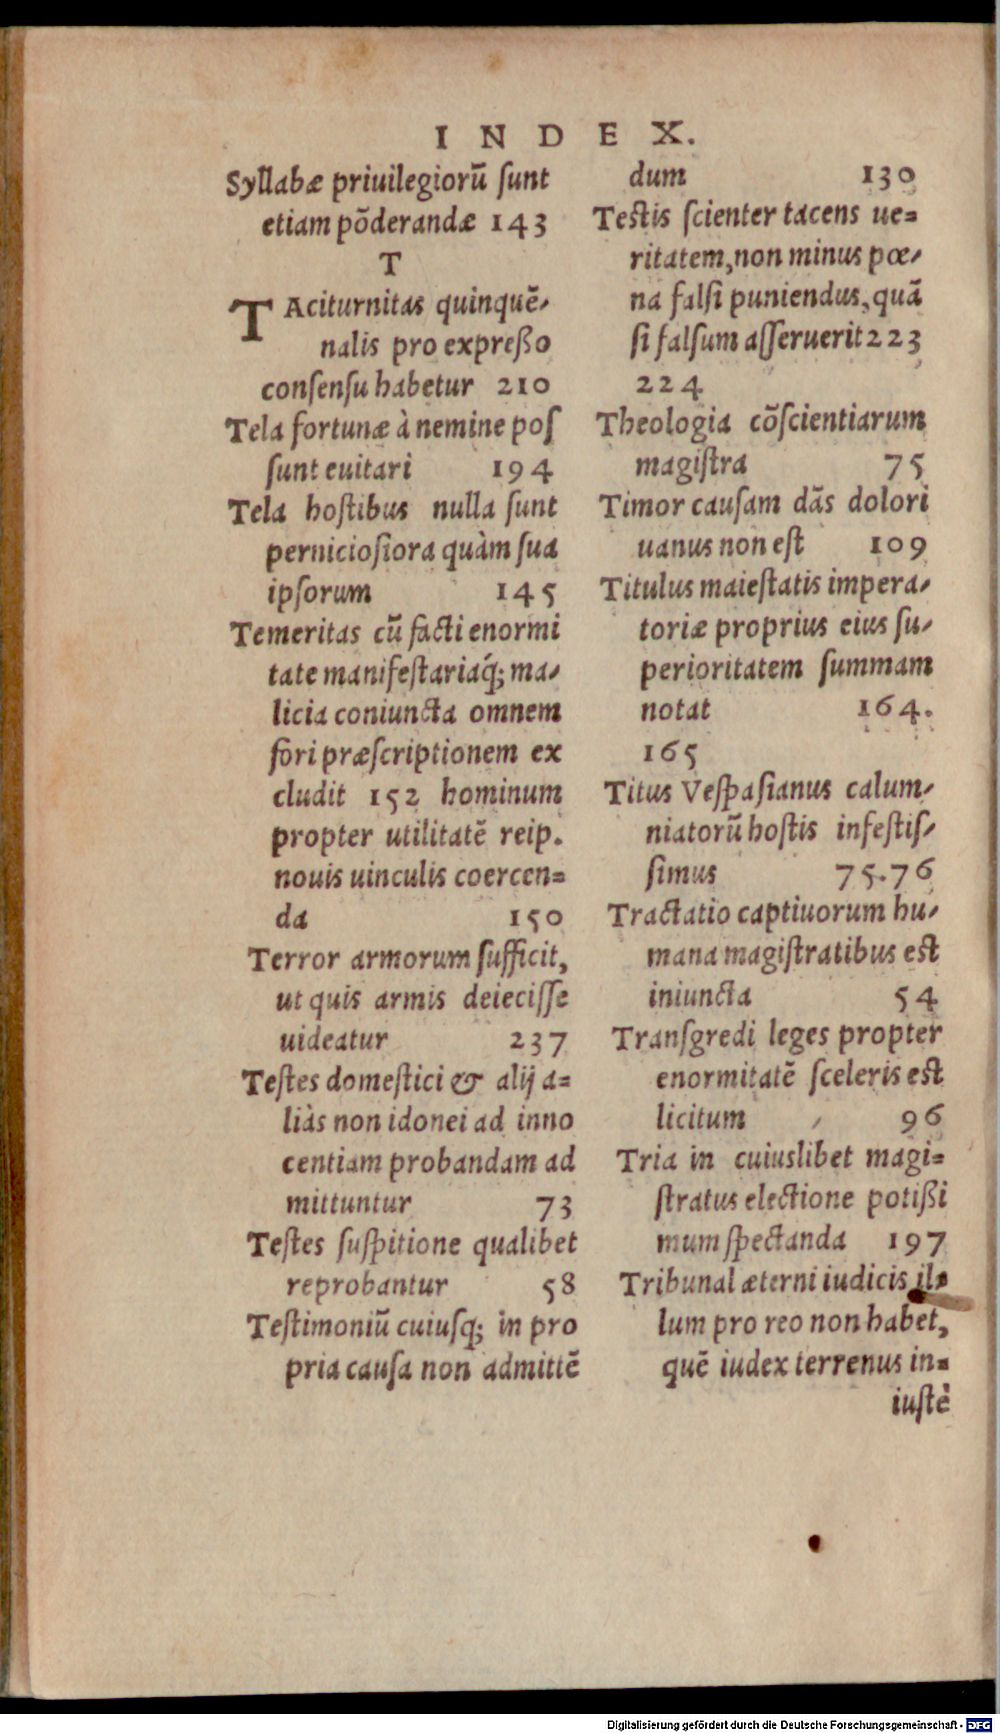 INDEX.
Syllabæ priuilegiorū ſunt
etiam põderandæ 143
T
TAciturnitas quinquē-
nalis pro expreßo
conſenſu habetur 210
Tela fortunæ à nemine poſ
ſunt euitari 194
Tela hoſtibus nulla ſunt
pernicioſiora quàm ſua
ipſorum 145
Temeritas cū facti enormi
tate manifeſtariaq́; ma-
licia coniuncta omnem
fori præſcriptionem ex
cludit 152 hominum
propter utilitatē reip.
nouis uinculis coercen=
da 150
Terror armorum ſufficit,
ut quis armis deieciſſe
uideatur 237
Teſtes domeſtici & alij a=
liàs non idonei ad inno
centiam probandam ad
mittuntur 73
Teſtes ſuſpitione qualibet
reprobantur 58
Teſtimoniū cuiuſq; in pro
pria cauſa non admittē
dum 130
Teſtis ſcienter tacens ue=
ritatem, non minus pœ-
na falſi puniendus, quã
ſi falſum aſſeruerit 223
224
Theologia cõſcientiarum
magiſtra 75
Timor cauſam dãs dolori
uanus non eſt 109
Titulus maieſtatis impera-
toriæ proprius eius ſu-
perioritatem ſummam
notat 164.
165
Titus Veſpaſianus calum-
niatorū hoſtis infeſtiſ-
ſimus 75.76
Tractatio captiuorum hu-
mana magiſtratibus eſt
iniuncta 54
Tranſgredi leges propter
enormitatē ſceleris eſt
licitum 96
Tria in cuiuslibet magi=
ſtratus electione potißi
mum ſpectanda 197
Tribunal æterni iudicis il=
lum pro reo non habet,
quē iudex terrenus in=
iuſtè
Digitalisierung gefördert durch die Deutsche Forschungsgemeinschaft - DFG